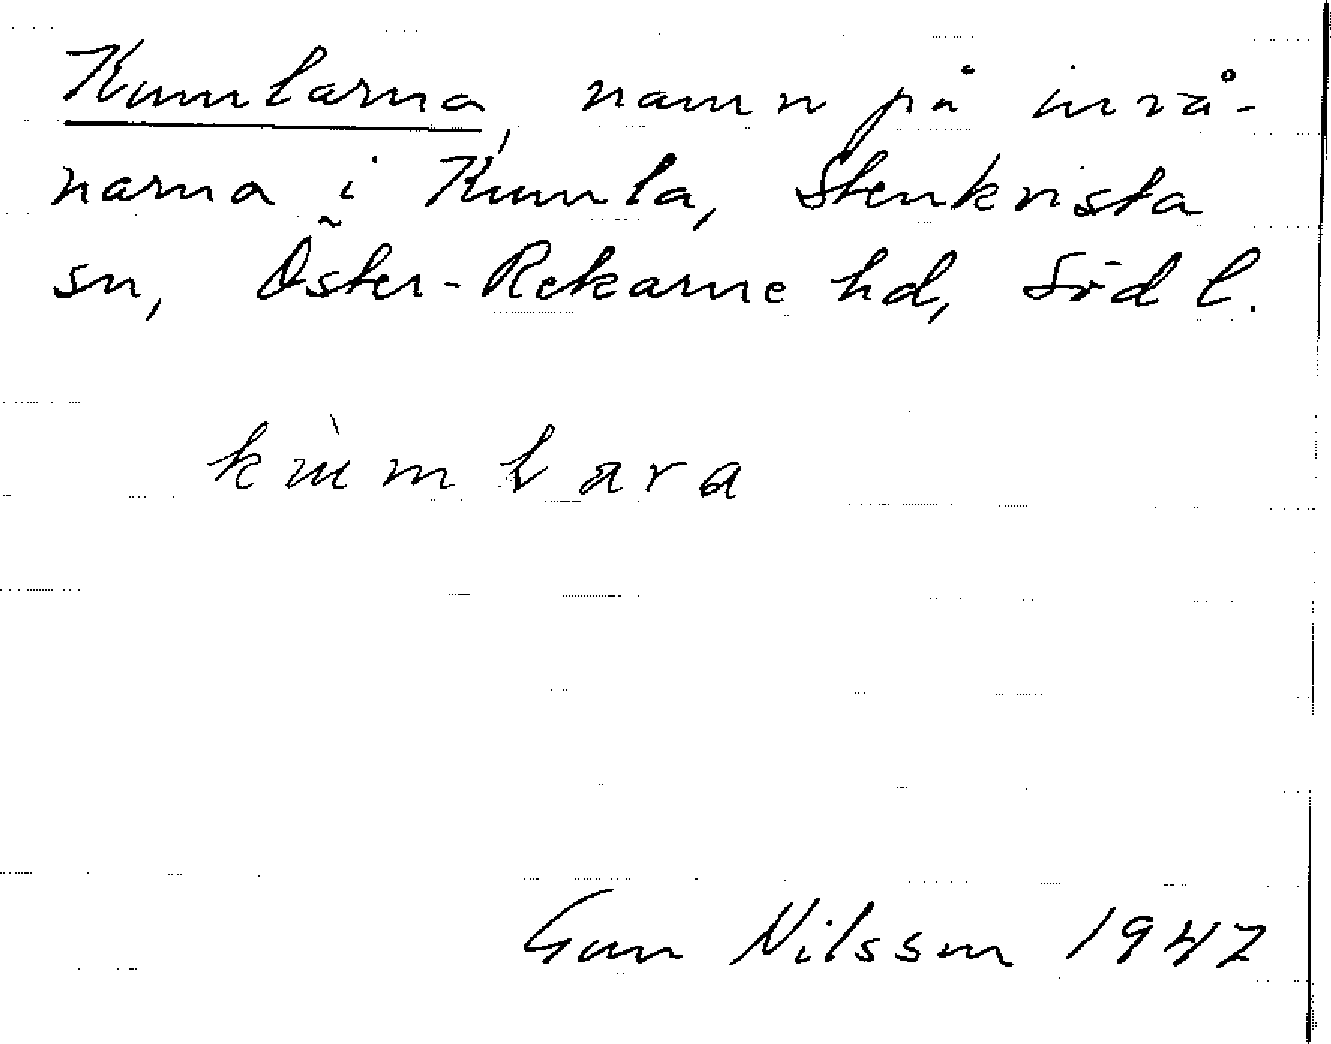 Kumlarna, namn på invå-
narna i Kumla, Stenkvista
sn, Öster-Rekarne hd, Södl.
kùmlara
Gun Nilsson 1947